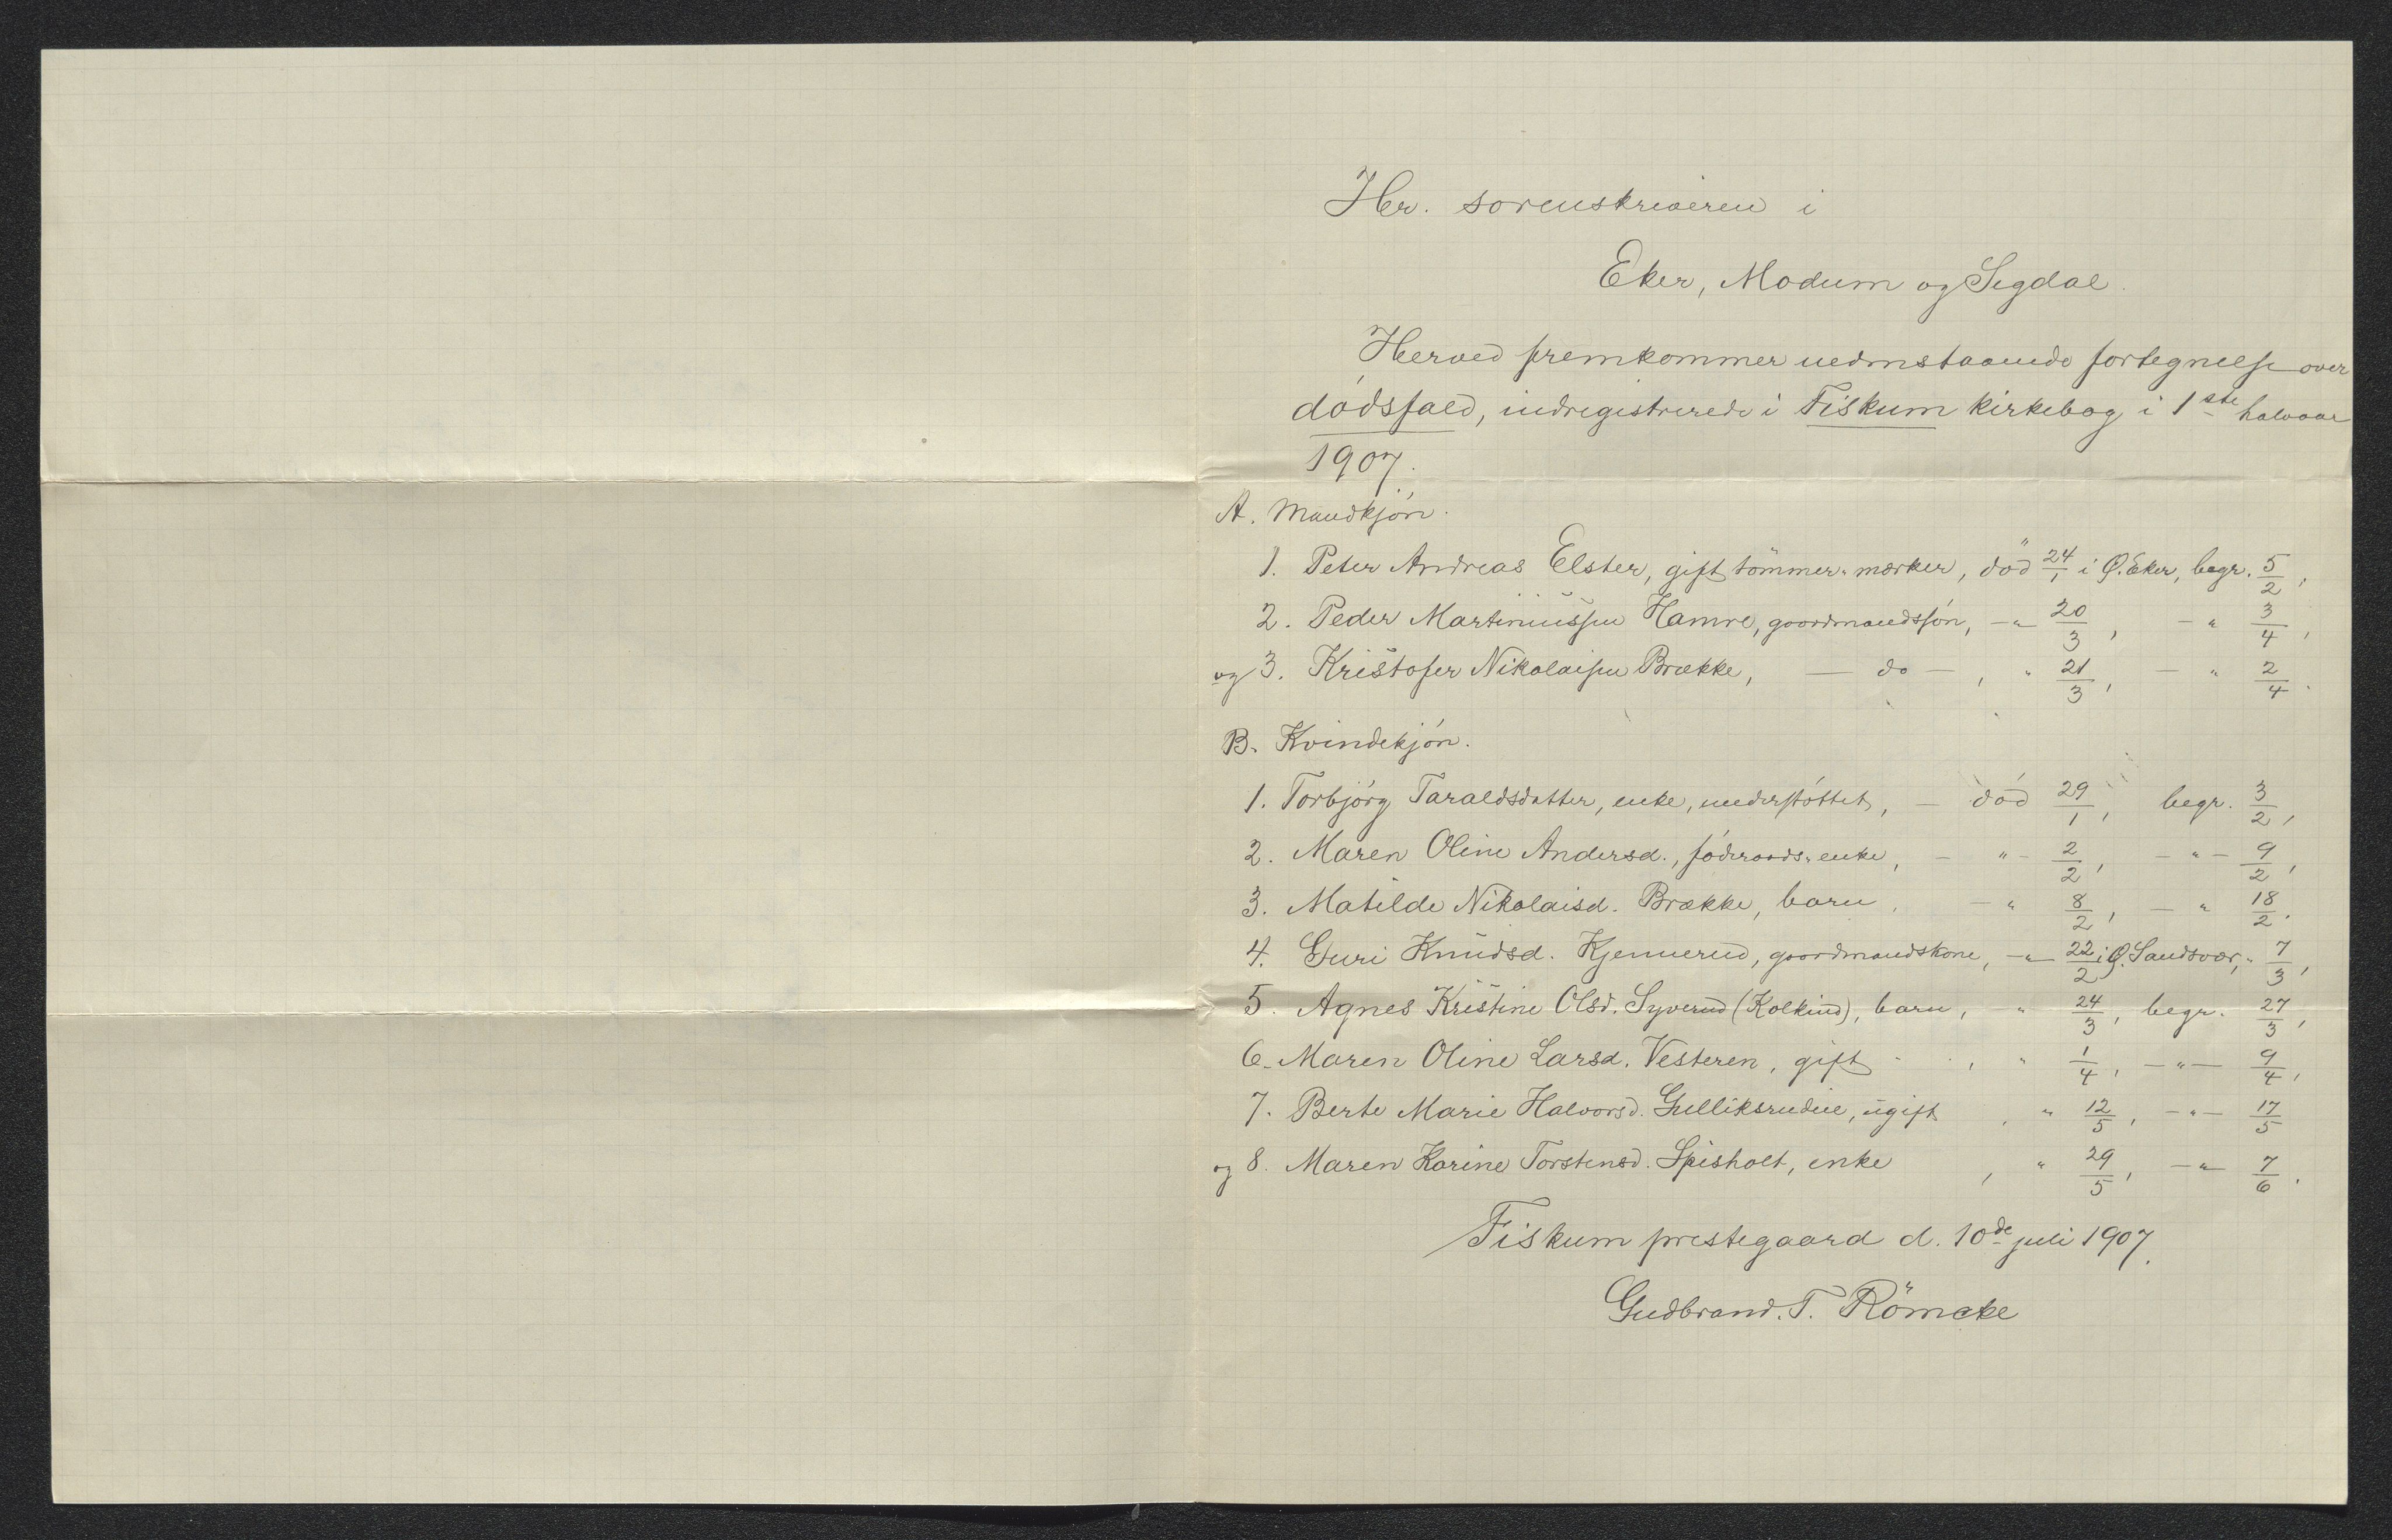 Hr. sorenskriveren i
Eker, Modum og Sigdal.
Herved fremkommer nedenstaaende fortegnelse over
dødsfald, indregistrerede i Fiskum kirkebog i 1ste halvaar
1907.
A. Mandkjøn.
1. Peter Andreas Elster, gift tömmer-mærker, död 24/1 i Ø. Eker, begr. 5/2,
2. Peder Martiniussen Hamre, gaardmandssøn, —"— 20/3, —" 3/4,
og 3. Kristofer Nikolaisen Brække, — do —, " 21/3, —" 2/4.
B. Kvindekjøn.
1. Torbjørg Taraldsdatter, enke, understøttet, — død 29/1, begr. 3/2,
2. Maren Oline Andersd., føderaads-enke, —"— 2/2, —"— 9/2,
3. Matilde Nikolaisd. Brække, barn, —" 8/2, —" 18/2.
4. Guri Knudsd. Kjennerud, gaardmandskone, —"— 22/2 i Ø. Sandsvær, " 7/3,
5. Agnes Kristine Olsd. Syverud (Kolkind), barn, " 24/3, begr. 27/3,
6. Maren Oline Larsd. Vesteren, gift, " 1/4, —"— 9/4,
7. Berte Marie Halvorsd. Gulliksrudeie, ugift, " 12/5, —"— 17/5
og 8. Maren Karine Torstensd. Spisholt, enke, " 29/5, —"— 7/6.
Fiskum prestegaard d. 10de juli 1907.
Gudbrand. T. Römcke